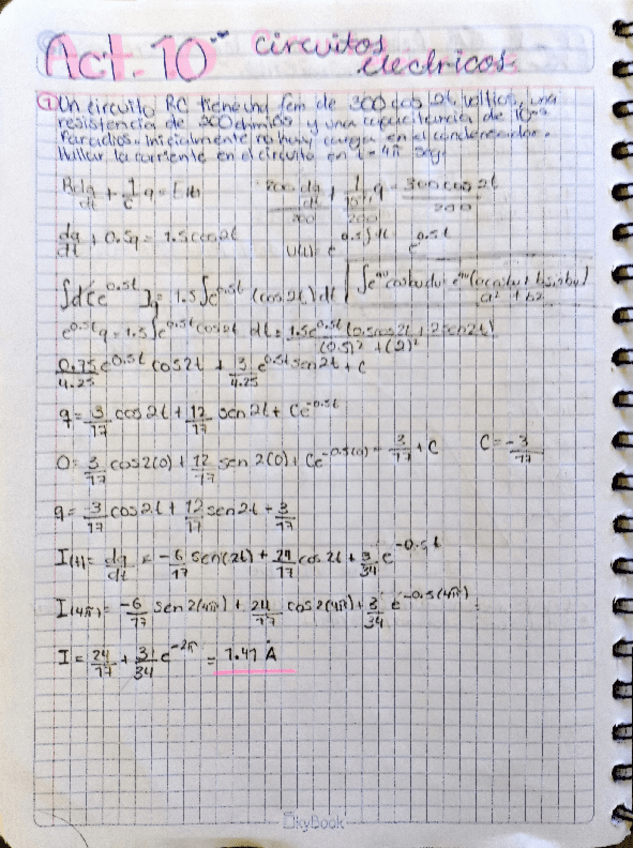 Act. 10 Circuitos
electricos.
① Un circuito RC tiene una fem de 300 cos 2t voltios, una
resistencia de 200 ohmios y una capacitancia de 10⁻²
Faradios. Inicialmente no hay carga en el condensador.
Hallar la corriente en el circuito en t = 4π seg.
R dq/dt + 1/c q = E(t) 200 dq/dt / 200 + 1/10⁻² q / 200 = 300 cos 2t / 200
dq/dt + 0.5q = 1.5 cos 2t u(t) = e^0.5∫dt e^0.5t
∫d[e^0.5t q] = 1.5∫e^0.5t (cos 2t) dt | ∫e^au cos bu du = e^au (a cos bu + b sin bu) / a² + b²
e^0.5t q = 1.5∫e^0.5t cos 2t dt = 1.5e^0.5t (0.5 cos 2t + 2 sen 2t) / (0.5)² + (2)²
0.75/4.25 e^0.5t cos 2t + 3/4.25 e^0.5t sen 2t + C
q = 3/17 cos 2t + 12/17 sen 2t + Ce^-0.5t
0 = 3/17 cos 2(0) + 12/17 sen 2(0) + Ce^-0.5(0) = 3/17 + C C = -3/17
q = -3/17 cos 2t + 12/17 sen 2t + 3/17
I(t) = dq/dt = -6/17 sen(2t) + 24/17 cos 2t + 3/34 e^-0.5t
I(4π) = -6/17 sen 2(4π) + 24/17 cos 2(4π) + 3/34 e^-0.5(4π)
I = 24/17 + 3/34 e^-2π = 1.41 A
SkyBook